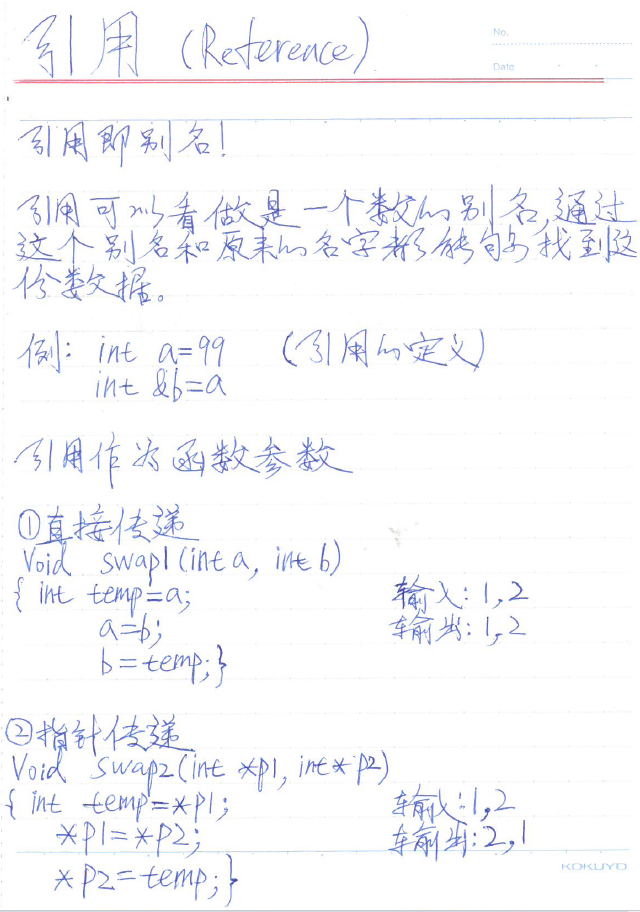 引用 (Reference)
No.
Date
引用即别名!
引用可以看做是一个数的别名,通过
这个别名和原来的名字都能够找到这
份数据。
例: int a=99 (引用的定义)
int &b=a
引用作为函数参数
①直接传递
Void swap1(int a, int b)
{ int temp=a; 输入:1,2
a=b; 输出:1,2
b=temp;}
②指针传递
Void swap2(int *p1, int* p2)
{ int temp=*p1; 输入:1,2
*p1=*p2; 输出:2,1
KOKUYO
*p2=temp;}